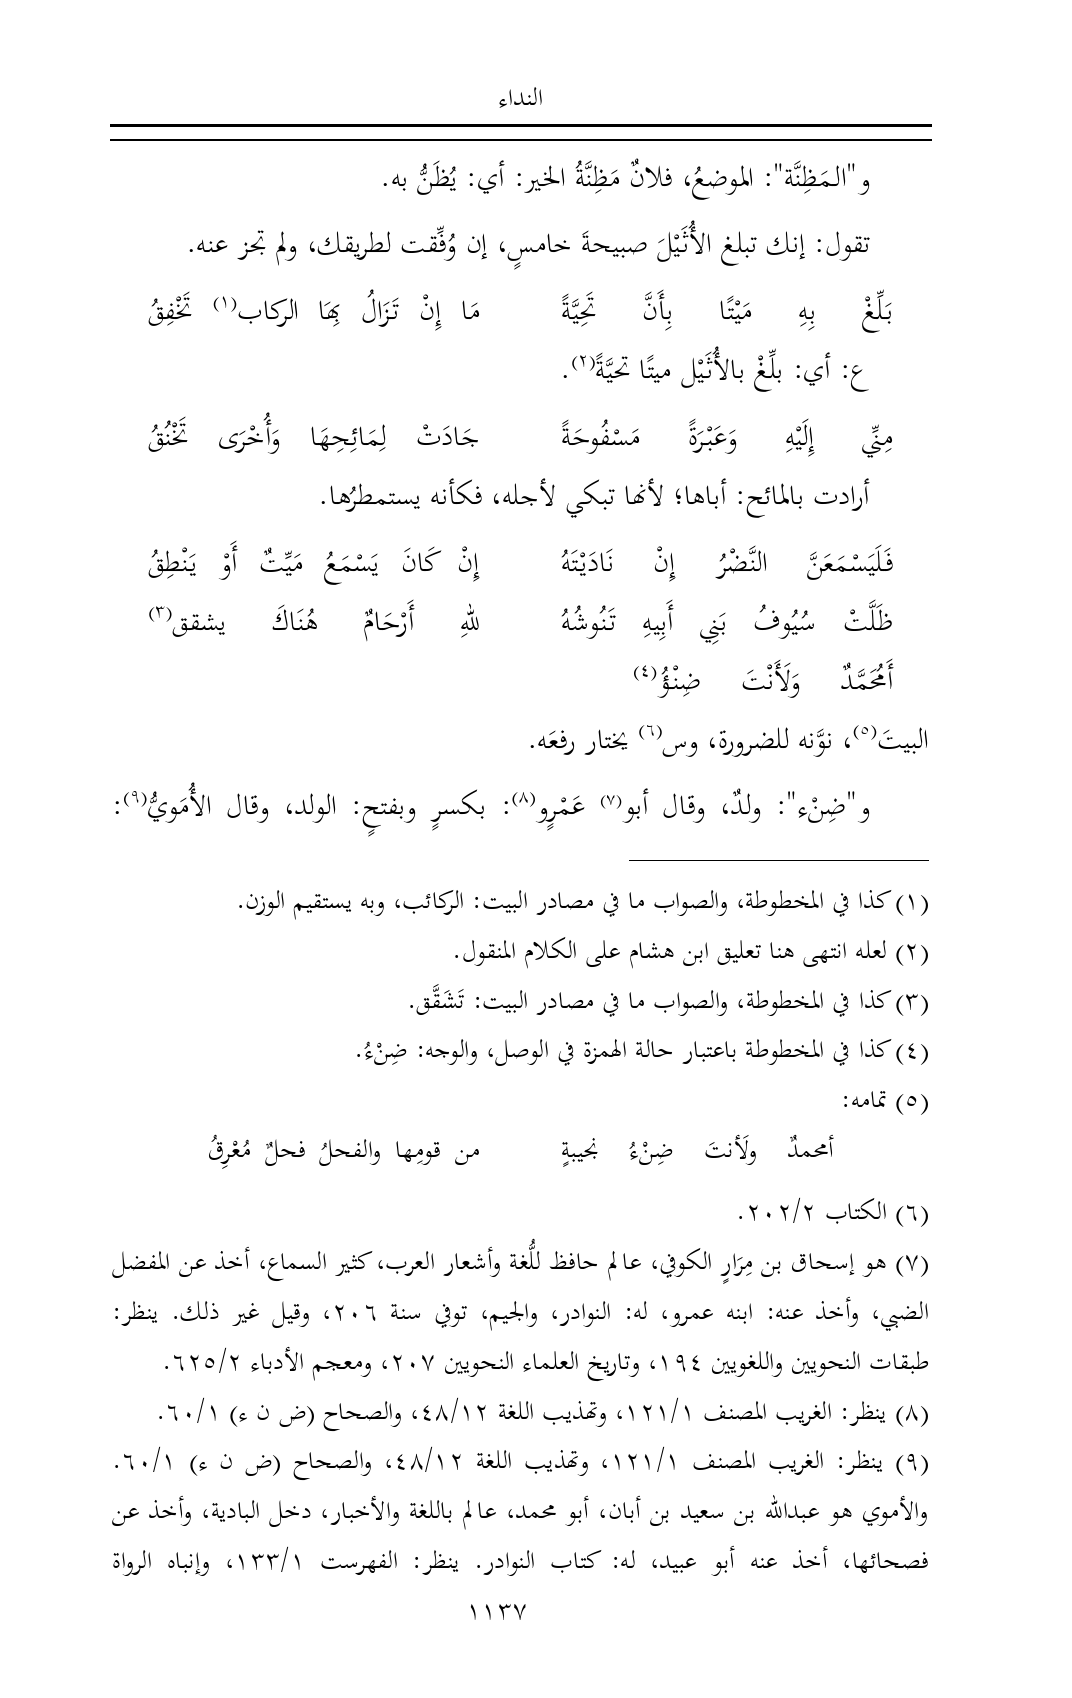 النداء
و"المَظِنَّة": الموضعُ، فلانٌ مَظِنَّةُ الخير: أي: يُظَنُّ به.
تقول: إنك تبلغ الأُثَيْلَ صبيحةَ خامسٍ، إن وُفِّقت لطريقك، ولم تجز عنه.
بَلِّغْ بِهِ مَيْتًا بِأَنَّ تَحِيَّةً مَا إِنْ تَزَالُ بِهَا الركاب(١) تَخْفِقُ
ع: أي: بلِّغْ بالأُثَيْل ميتًا تحيَّةً(٢).
مِنِّي إِلَيْهِ وَعَبْرَةً مَسْفُوحَةً جَادَتْ لِمَائِحِهَا وَأُخْرَى تَخْنُقُ
أرادت بالمائح: أباها؛ لأنها تبكي لأجله، فكأنه يستمطرُها.
فَلَيَسْمَعَنَّ النَّضْرُ إِنْ نَادَيْتَهُ إِنْ كَانَ يَسْمَعُ مَيِّتٌ أَوْ يَنْطِقُ
ظَلَّتْ سُيُوفُ بَنِي أَبِيهِ تَنُوشُهُ للهِ أَرْحَامٌ هُنَاكَ يشقق(٣)
أَمُحَمَّدٌ وَلَأَنْتَ ضِنْؤُ(٤)
البيتَ(٥)، نوَّنه للضرورة، وس(٦) يختار رفعَه.
و"ضِنْء": ولدٌ، وقال أبو(٧) عَمْرٍو(٨): بكسرٍ وبفتحٍ: الولد، وقال الأُمَويُّ(٩):
(١) كذا في المخطوطة، والصواب ما في مصادر البيت: الركائب، وبه يستقيم الوزن.
(٢) لعله انتهى هنا تعليق ابن هشام على الكلام المنقول.
(٣) كذا في المخطوطة، والصواب ما في مصادر البيت: تَشَقَّق.
(٤) كذا في المخطوطة باعتبار حالة الهمزة في الوصل، والوجه: ضِنْءُ.
(٥) تمامه:
أمحمدٌ ولَأنتَ ضِنْءُ نجيبةٍ من قومِها والفحلُ فحلٌ مُعْرِقُ
(٦) الكتاب ٢٠٢/٢.
(٧) هو إسحاق بن مِرَارٍ الكوفي، عالم حافظ للُّغة وأشعار العرب، كثير السماع، أخذ عن المفضل
الضبي، وأخذ عنه: ابنه عمرو، له: النوادر، والجيم، توفي سنة ٢٠٦، وقيل غير ذلك. ينظر:
طبقات النحويين واللغويين ١٩٤، وتاريخ العلماء النحويين ٢٠٧، ومعجم الأدباء ٦٢٥/٢.
(٨) ينظر: الغريب المصنف ١٢١/١، وتهذيب اللغة ٤٨/١٢، والصحاح (ض ن ء) ٦٠/١.
(٩) ينظر: الغريب المصنف ١٢١/١، وتهذيب اللغة ٤٨/١٢، والصحاح (ض ن ء) ٦٠/١.
والأموي هو عبدالله بن سعيد بن أبان، أبو محمد، عالم باللغة والأخبار، دخل البادية، وأخذ عن
فصحائها، أخذ عنه أبو عبيد، له: كتاب النوادر. ينظر: الفهرست ١٣٣/١، وإنباه الرواة
١١٣٧